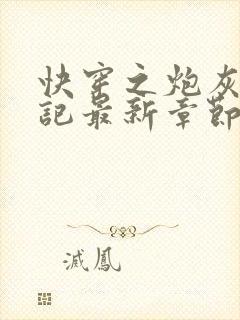 快穿之炮灰
記最新章節
滅鳳